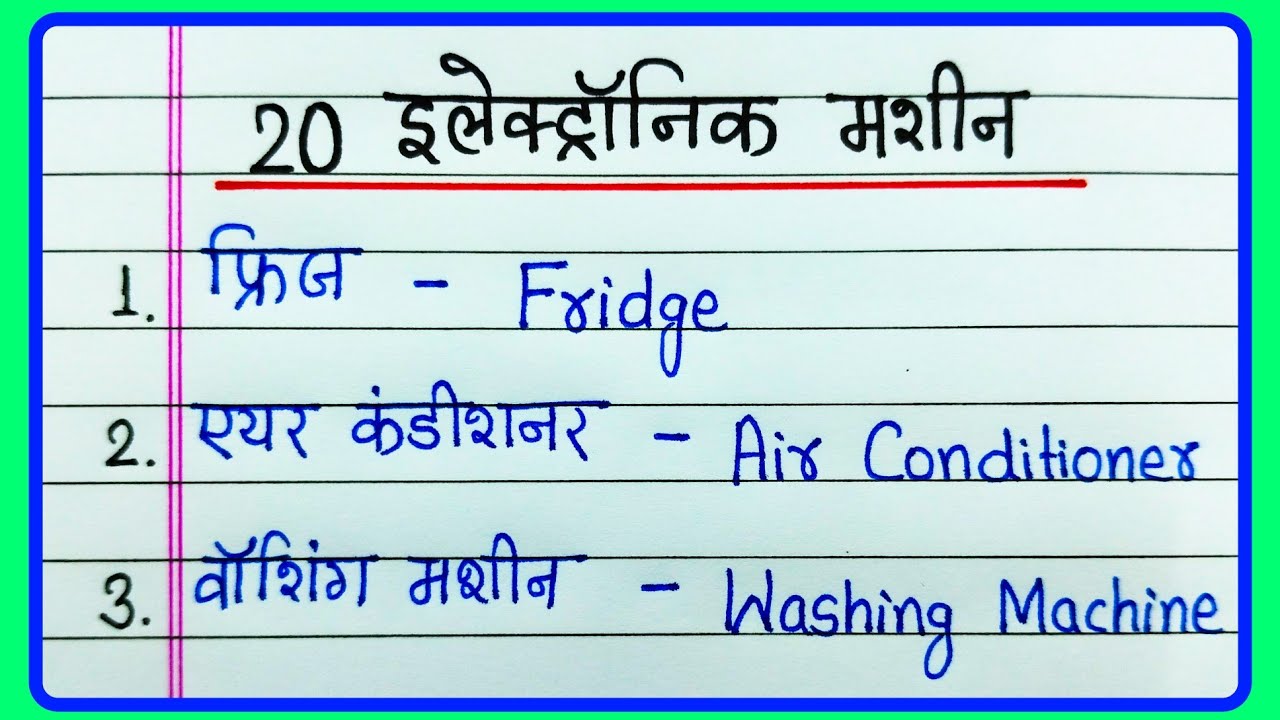 20 इलेक्ट्रॉनिक मशीन
1. फ्रिज - Fridge
2. एयर कंडीशनर - Air Conditioner
3. वॉशिंग मशीन - Washing Machine